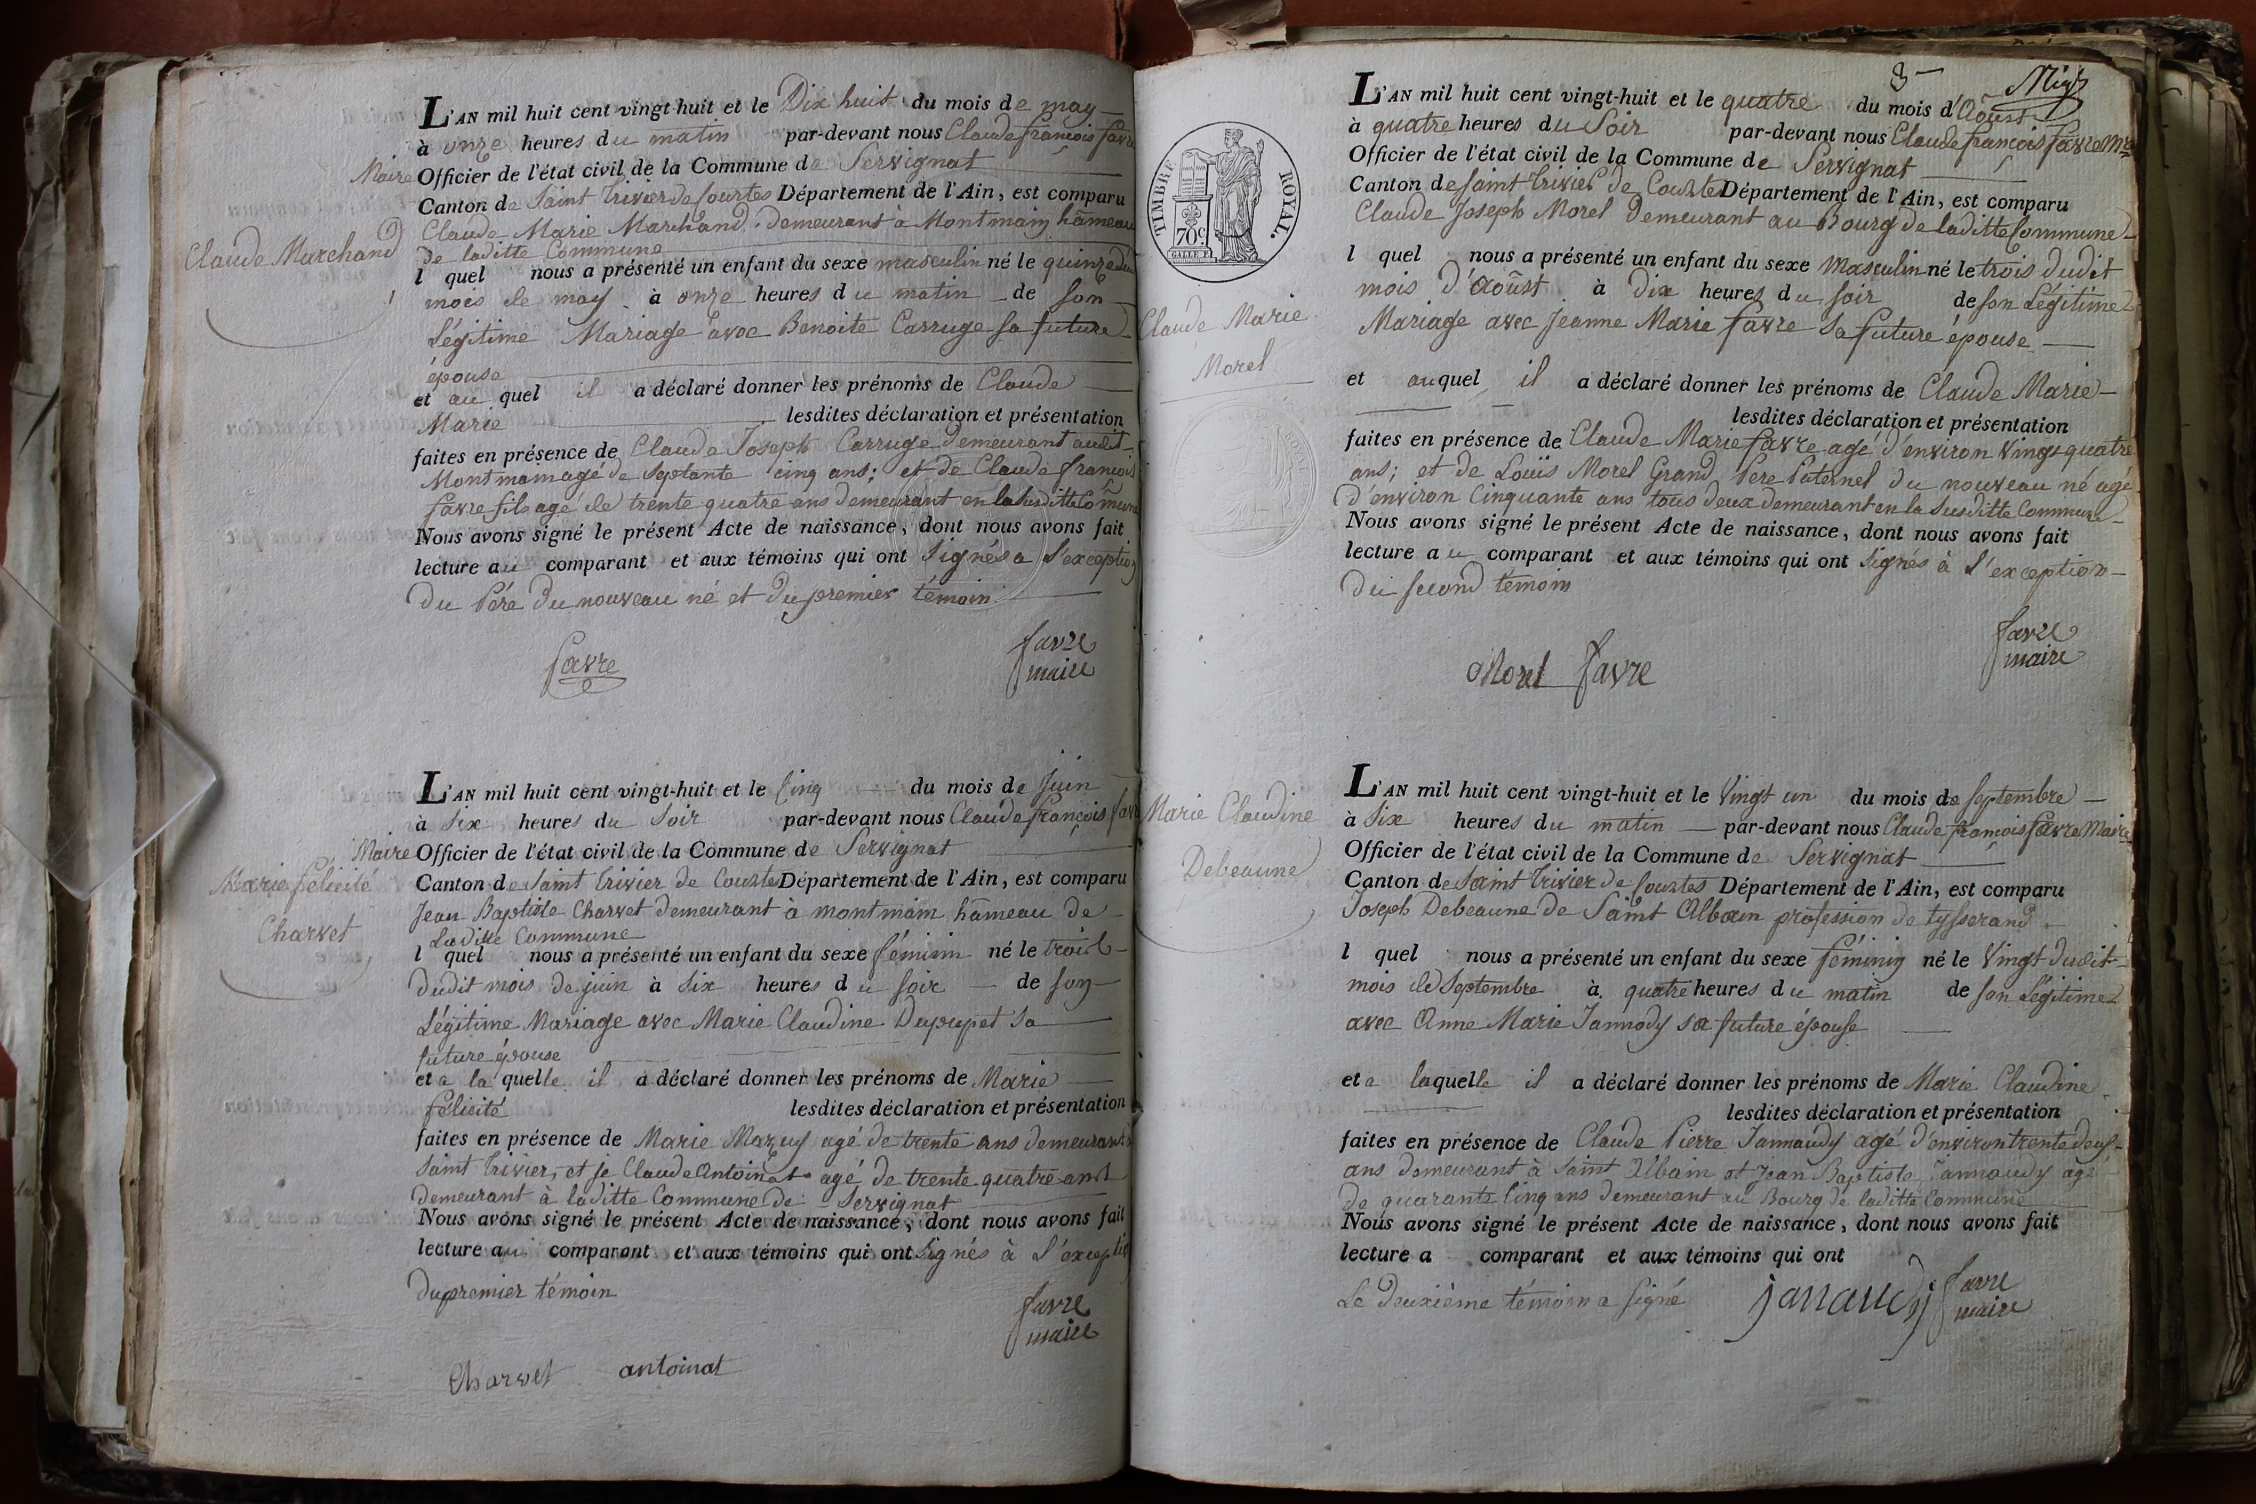 L'AN mil huit cent vingt-huit et le Dix huit du mois de may
à onze heures du matin par-devant nous Claude françois favre
Maire Officier de l'état civil de la Commune de Servignat
Canton de Saint Trivier de Courtes Département de l'Ain, est comparu
Claude Marie Marchand demeurant à Montmain hâmeau
Claude Marchand
de laditte Commune
l quel nous a présenté un enfant du sexe masculin né le quinze du
mois de may à onze heures du matin de son
Légitime Mariage avec Benoite Carruge sa future
épouse
et au quel il a déclaré donner les prénoms de Claude
Marie lesdites déclaration et présentation
faites en présence de Claude Joseph Carruge demeurant audit
Montmain agé de Septante cinq ans; et de Claude françois
favre fils agé de trente quatre ans demeurant en la Susditte Commune
Nous avons signé le présent Acte de naissance, dont nous avons fait
lecture au comparant et aux témoins qui ont Signés a l'exception
Du Pére Du nouveau né et Du premier témoin
favre
favre
maire
L'AN mil huit cent vingt-huit et le Cinq du mois de Juin
à Six heures du Soir par-devant nous Claude françois favre
Maire Officier de l'état civil de la Commune de Servignat
Marie félicité
Charvet
Canton de Saint Trivier de Courtes Département de l'Ain, est comparu
Jean Baptiste Charvet demeurant à montmain hâmeau de
Laditte Commune
l quel nous a présenté un enfant du sexe féminin né le trois
dudit mois de juin à Six heures du soir de son
Légitime Mariage avec Marie Claudine Dupupet sa
future épouse
et a la quelle il a déclaré donner les prénoms de Marie
félicité lesdites déclaration et présentation
faites en présence de Marie Mazuy agé de trente ans demeurant
Saint Trivier, et je Claude Antoinat agé de trente quatre ans
demeurant à laditte Commune de Servignat
Nous avons signé le présent Acte de naissance, dont nous avons fait
lecture au comparant et aux témoins qui ont Signés à l'exception
Du premier témoin
favre
maire
Charvet antoinat
3
L'AN mil huit cent vingt-huit et le quatre du mois d'Aoûst
à quatre heures du Soir par-devant nous Claude françois favre Mre
Officier de l'état civil de la Commune de Servignat
Canton de Saint Trivier de Courtes Département de l'Ain, est comparu
Claude Joseph Morel Demeurant au Bourg de laditte Commune
TIMBRE ROYAL.
70c.
l quel nous a présenté un enfant du sexe Masculin né le trois dudit
mois d'Aoûst à Dix heures du soir de son Légitime
Claude Marie
Morel
Mariage avec Jeanne Marie favre Sa future épouse
et auquel il a déclaré donner les prénoms de Claude Marie
lesdites déclaration et présentation
faites en présence de Claude Marie favre agé d'environ Vingt quatre
ans; et de Louïs Morel Grand Pere Paternel du nouveau né agé
D'environ Cinquante ans tous deux demeurant en la Susditte Commune
Nous avons signé le présent Acte de naissance, dont nous avons fait
lecture au comparant et aux témoins qui ont Signés à l'exception
Du second témoin
favre
maire
Morel favre
L'AN mil huit cent vingt-huit et le Vingt un du mois de Septembre
à Six heures du matin par-devant nous Claude françois favre Maire
Marie Claudine
Debeaune
Officier de l'état civil de la Commune de Servignat
Canton de Saint Trivier de Courtes Département de l'Ain, est comparu
Joseph Debeaune de Saint Albain profession de tysserand
l quel nous a présenté un enfant du sexe féminin né le Vingt dudit
mois de Septembre à quatre heures du matin de son Légitime
avec Anne Marie Jannody sa future épouse
et a laquelle il a déclaré donner les prénoms de Marie Claudine
lesdites déclaration et présentation
faites en présence de Claude Pierre Jannaudy agé d'environ trente deux
ans demeurant à Saint Albain et Jean Baptiste Jannaudy agé
De quarante Cinq ans demeurant au Bourg de laditte Commune
Nous avons signé le présent Acte de naissance, dont nous avons fait
lecture a comparant et aux témoins qui ont
Le Deuxième témoin a signé janaudy favre
maire